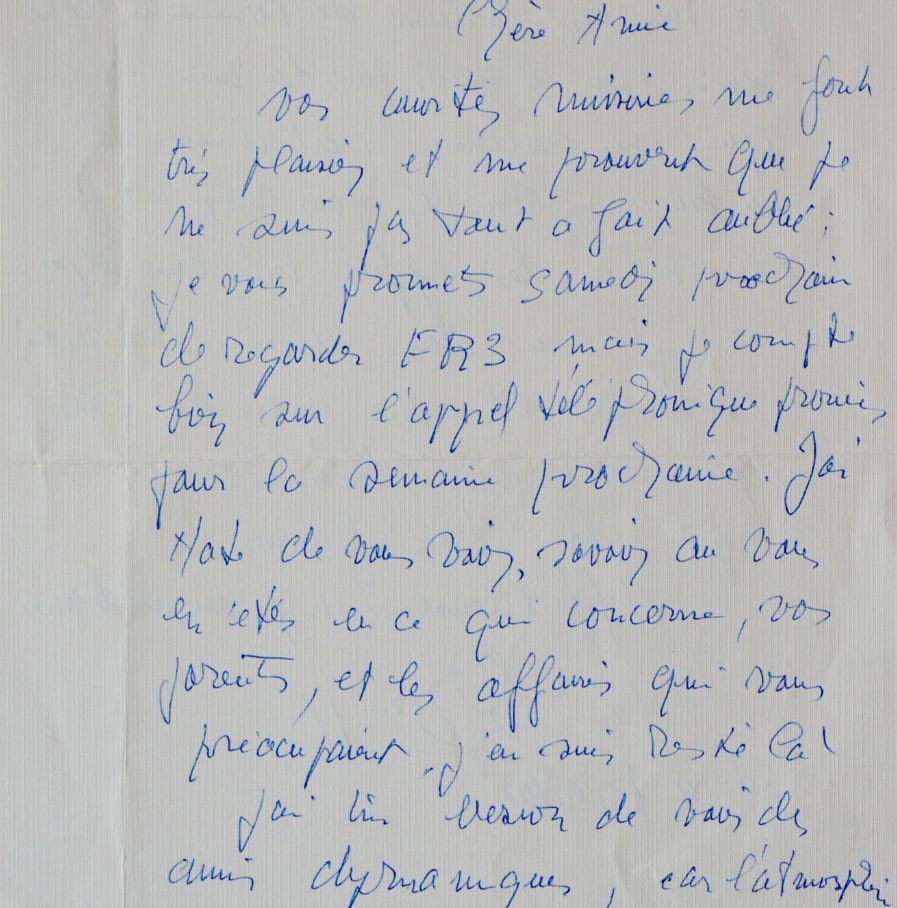 Chère Amie
vos courtes missives me font
très plaisir et me prouvent que je
ne suis pas tout a fait oublié ;
je vous promets samedi prochain
de regarder FR3 mais je compte
bien sur l'appel téléphonique promis
pour la semaine prochaine. J'ai
hate de vous voir, savoir ou vous
en étés en ce qui concerne, vos
parents, et les affaires qui vous
préocupaient, j'en suis resté la !
J'ai besoin de voir des
amis dynamiques, car l'atmosphère